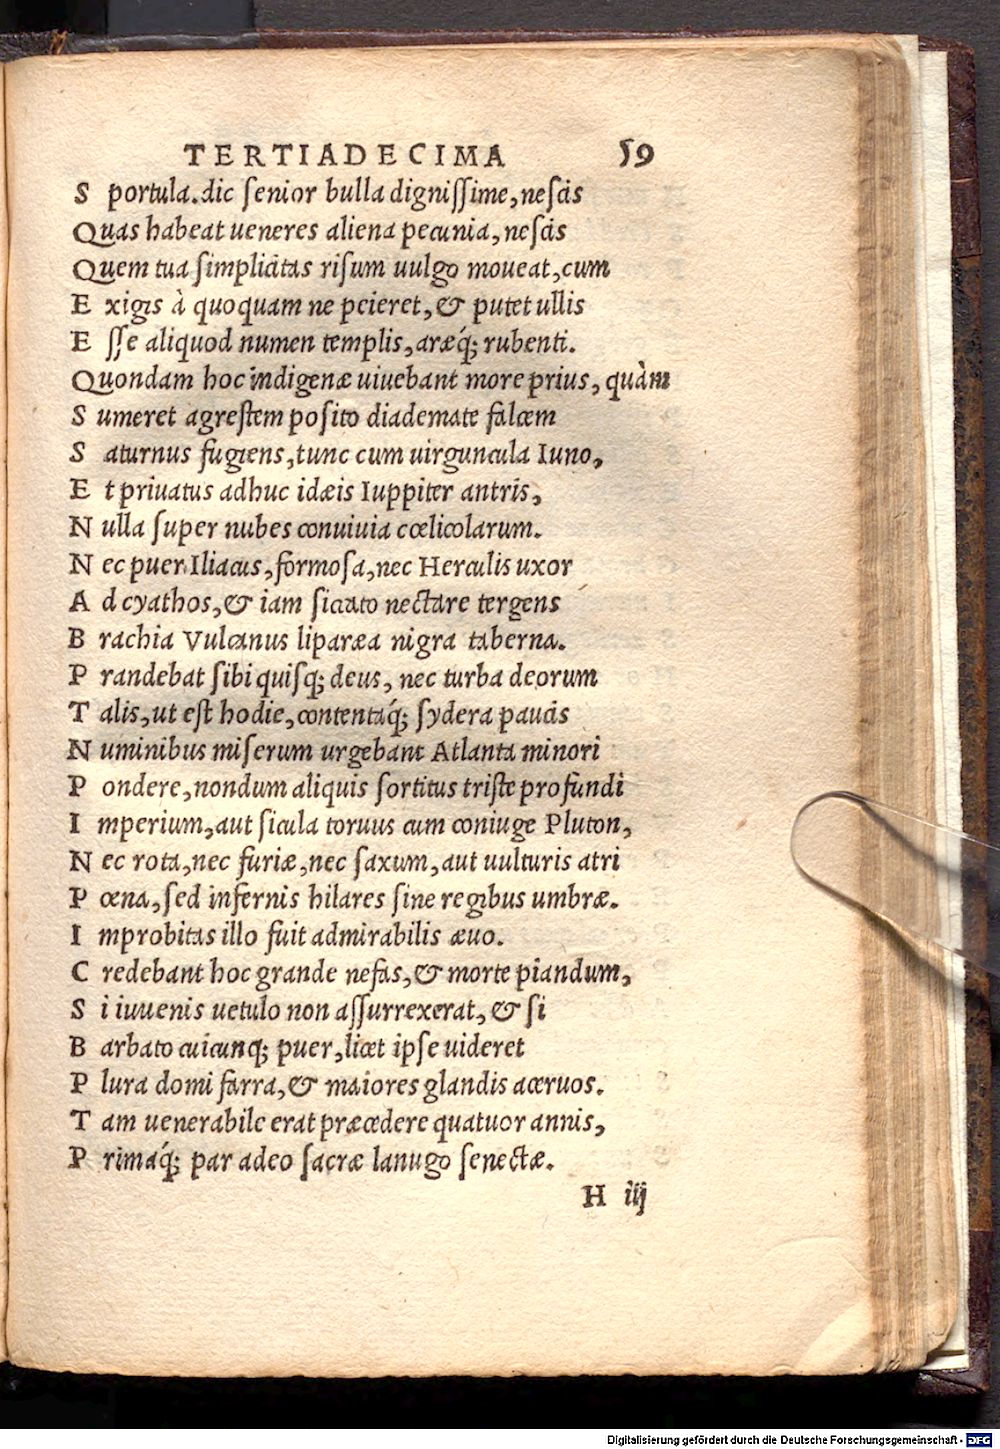 TERTIADECIMA 59
S portula. dic ſenior bulla digniſſime, neſcis
Quas habeat ueneres aliena pecunia, neſcis
Quem tua ſimplicitas riſum uulgo moueat, cum
E xigis à quoquam ne peieret, & putet ullis
E ſſe aliquod numen templis, aræq́; rubenti.
Quondam hoc indigenæ uiuebant more prius, quàm
S umeret agreſtem poſito diademate falcem
S aturnus fugiens, tunc cum uirguncula Iuno,
E t priuatus adhuc idæis Iuppiter antris,
N ulla ſuper nubes conuiuia cœlicolarum.
N ec puer Iliacus, formoſa, nec Herculis uxor
A d cyathos, & iam ſiccato nectare tergens
B rachia Vulcanus liparæa nigra taberna.
P randebat ſibi quiſq; deus, nec turba deorum
T alis, ut eſt hodie, contentáq; ſydera paucis
N uminibus miſerum urgebant Atlanta minori
P ondere, nondum aliquis ſortitus triſte profundi
I mperium, aut ſicula toruus cum coniuge Pluton,
N ec rota, nec furiæ, nec ſaxum, aut uulturis atri
P œna, ſed infernis hilares ſine regibus umbræ.
I mprobitas illo fuit admirabilis æuo.
C redebant hoc grande nefas, & morte piandum,
S i iuuenis uetulo non aſſurrexerat, & ſi
B arbato cuicunq; puer, licet ipſe uideret
P lura domi farra, & maiores glandis aceruos.
T am uenerabile erat præcedere quatuor annis,
P rimaq́; par adeo ſacræ lanugo ſenectæ.
H iij
Digitalisierung gefördert durch die Deutsche Forschungsgemeinschaft - DFG